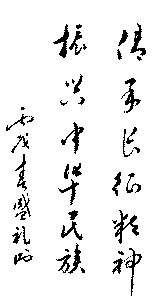 传承长征精神
振兴中华民族
丙戌春盛礼